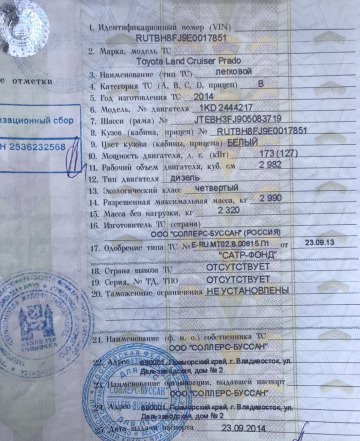 1. Идентификационный номер (VIN)
RUTBH8FJ9E0017851
2. Марка, модель ТС
Toyota Land Cruiser Prado
3. Наименование (тип ТС) легковой
4. Категория ТС (A, B, C, D, прицеп) B
5. Год изготовления ТС 2014
6. Модель, № двигателя 1KD 2444217
7. Шасси (рама) № JTEBH3FJ905083719
8. Кузов (кабина, прицеп) № RUTBH8FJ9E0017851
9. Цвет кузова (кабины, прицепа) БЕЛЫЙ
10. Мощность двигателя, л. с. (кВт) 173 (127)
11. Рабочий объем двигателя, куб. см 2 982
12. Тип двигателя дизель
13. Экологический класс четвертый
14. Разрешенная максимальная масса, кг 2 990
15. Масса без нагрузки, кг 2 320
16. Изготовитель ТС (страна)
ООО "СОЛЛЕРС-БУССАН" (РОССИЯ)
17. Одобрение типа ТС № E-RU.MT02.B.00615.П1 от 23.09.13
"САТР-ФОНД"
18. Страна вывоза ТС ОТСУТСТВУЕТ
19. Серия, № ТД, ТПО ОТСУТСТВУЕТ
20. Таможенные ограничения НЕ УСТАНОВЛЕНЫ
21. Наименование (ф. и. о.) собственника ТС
ООО "СОЛЛЕРС-БУССАН"
22. Адрес 690001, Приморский край, г. Владивосток, ул.
Дальзаводская, дом № 2
23. Наименование организации, выдавшей паспорт
ООО "СОЛЛЕРС-БУССАН"
24. Адрес 690001, Приморский край, г. Владивосток, ул.
Дальзаводская, дом № 2
25. Дата выдачи паспорта 23.09.2014
е отметки
изационный сбор
Н 2536232568